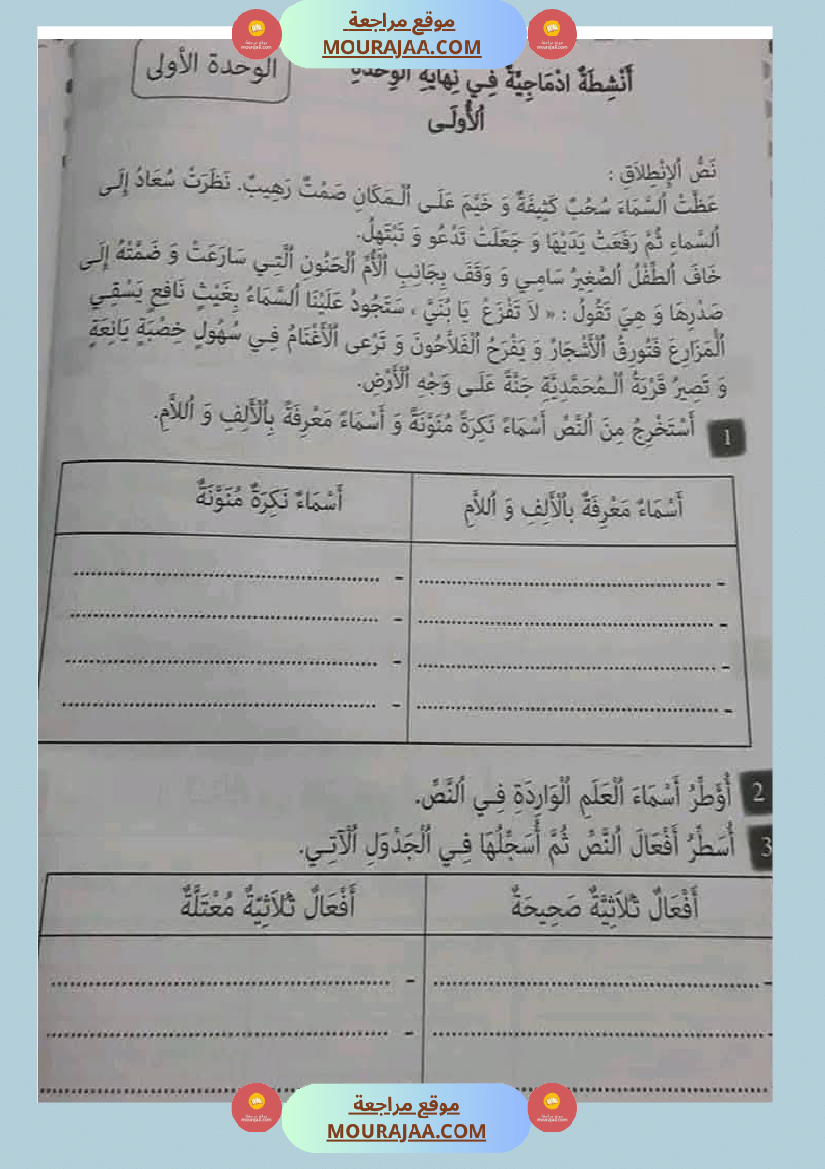 موقع مراجعة
MOURAJAA.COM
الوحدة الأولى
أَنْشِطَةٌ ادْمَاجِيَّةٌ فِي نِهَايَةِ الْوِحْدَةِ
اُلْأُولَى
نَصُّ اُلْإِنْطِلَاقِ :
غَطَّتْ اُلسَّمَاءَ سُحُبٌ كَثِيفَةٌ وَ خَيَّمَ عَلَى اُلْمَكَانِ صَمْتٌ رَهِيبٌ. نَظَرَتْ سُعَادُ إِلَى
اُلسَّماءِ ثُمَّ رَفَعَتْ يَدَيْهَا وَ جَعَلَتْ تَدْعُو وَ تَبْتَهِلُ.
خَافَ اُلطِّفْلُ اُلصَّغِيرُ سَامِي وَ وَقَفَ بِجَانِبِ اُلْأُمِّ اُلْحَنُونِ اُلَّتِي سَارَعَتْ وَ ضَمَّتْهُ إِلَى
صَدْرِهَا وَ هِيَ تَقُولُ : « لَا تَفْزَعْ يَا بُنَيَّ ، سَتَجُودُ عَلَيْنَا اُلسَّمَاءُ بِغَيْثٍ نَافِعٍ يَسْقِي
اُلْمَزَارِعَ فَتُورِقُ اُلْأَشْجَارُ وَ يَفْرَحُ اُلْفَلَّاحُونَ وَ تَرْعَى اُلْأَغْنَامُ فِي سُهُولٍ خِصْبَةٍ يَانِعَةٍ
وَ تَصِيرُ قَرْيَةُ اُلْمُحَمَّدِيَّةِ جَنَّةً عَلَى وَجْهِ اُلْأَرْضِ.
1 أَسْتَخْرِجُ مِنَ اُلنَّصِّ أَسْمَاءً نَكِرَةً مُنَوَّنَةً وَ أَسْمَاءً مَعْرِفَةً بِاُلْأَلِفِ وَ اُللَّامِ.
أَسْمَاءٌ مَعْرِفَةٌ بالْأَلِفِ وَ اُللَّامِ
أَسْمَاءٌ نَكِرَةٌ مُنَوَّنَةٌ
2 أُؤَطِّرُ أَسْمَاءَ اُلْعَلَمِ اُلْوَارِدَةِ فِي اُلنَّصِّ.
3 أُسَطِّرُ أَفْعَالَ اُلنَّصِّ ثُمَّ أُسَجِّلُهَا فِي اُلْجَدْوَلِ اُلْآتِي.
أَفْعَالٌ ثُلَاثِيَّةٌ صَحِيحَةٌ
أَفْعَالٌ ثُلَاثِيّةٌ مُعْتَلَّةٌ
موقع مراجعة
MOURAJAA.COM